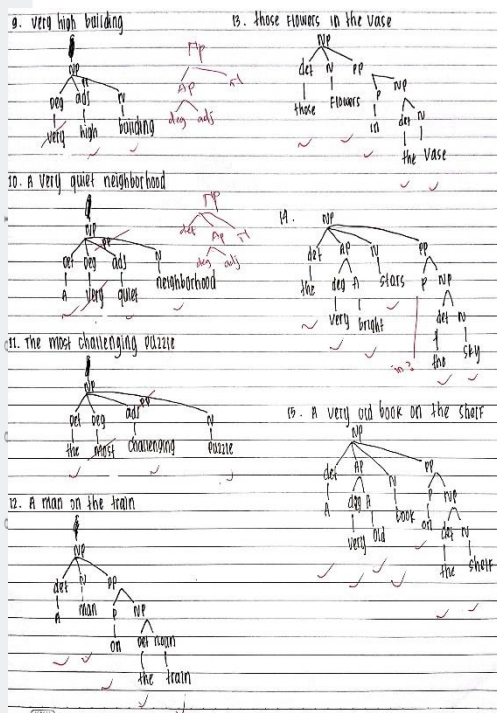 9. Very high building
NP
Deg adj N
very high building
NP
AP N
deg adj
10. A very quiet neighborhood
NP
Det Deg adj N
A very quiet neighborhood
NP
det AP N
deg adj
11. The most challenging puzzle
NP
Det Deg adj N
the most challenging puzzle
12. A man on the train
NP
det N PP
A man P NP
on Det noun
the train
13. those flowers in the vase
NP
det N PP
those flowers P NP
in det N
the vase
14.
NP
det AP N PP
the deg A stars P NP
very bright in? det N
the sky
15. A very old book on the shelf
NP
det AP N PP
A deg A book P NP
very old on det N
the shelf